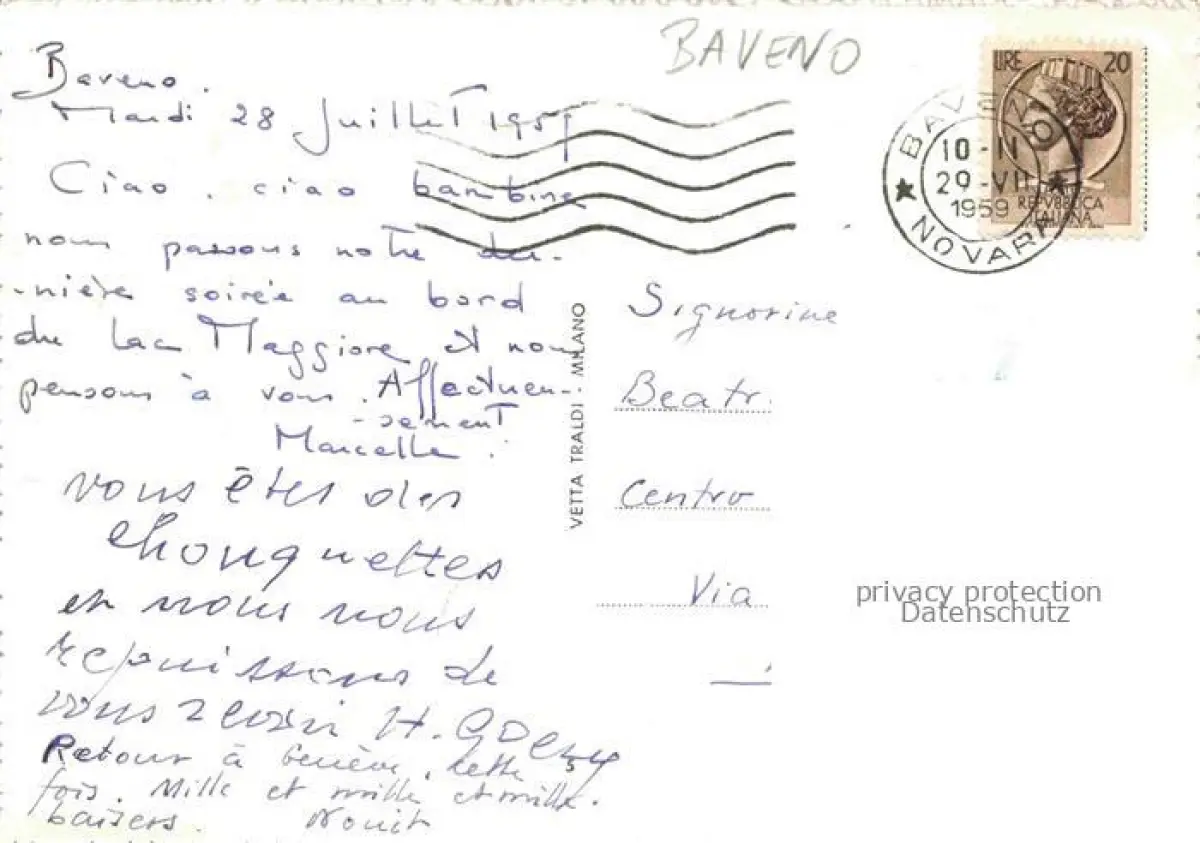 BAVENO
Baveno.
Mardi 28 Juillet 1959
Ciao, ciao bambine
nous passons notre der-
-nière soirée au bord
du Lac Maggiore et nous
pensons à vous. Affectueu-
-sement
Marcelle.
vous êtes des
chouquettes
et nous nous
rejouissons de
vous revoir H.
Retour à Genève, cette
fois. Mille et mille et mille.
baisers.
LIRE 20
REPVBBLICA
ITALIANA
BAVENO
10-11
29-VII
1959
NOVARA
VETTA TRALDI - MILANO
Signorine
Beatr.
Centro
Via
privacy protection
Datenschutz